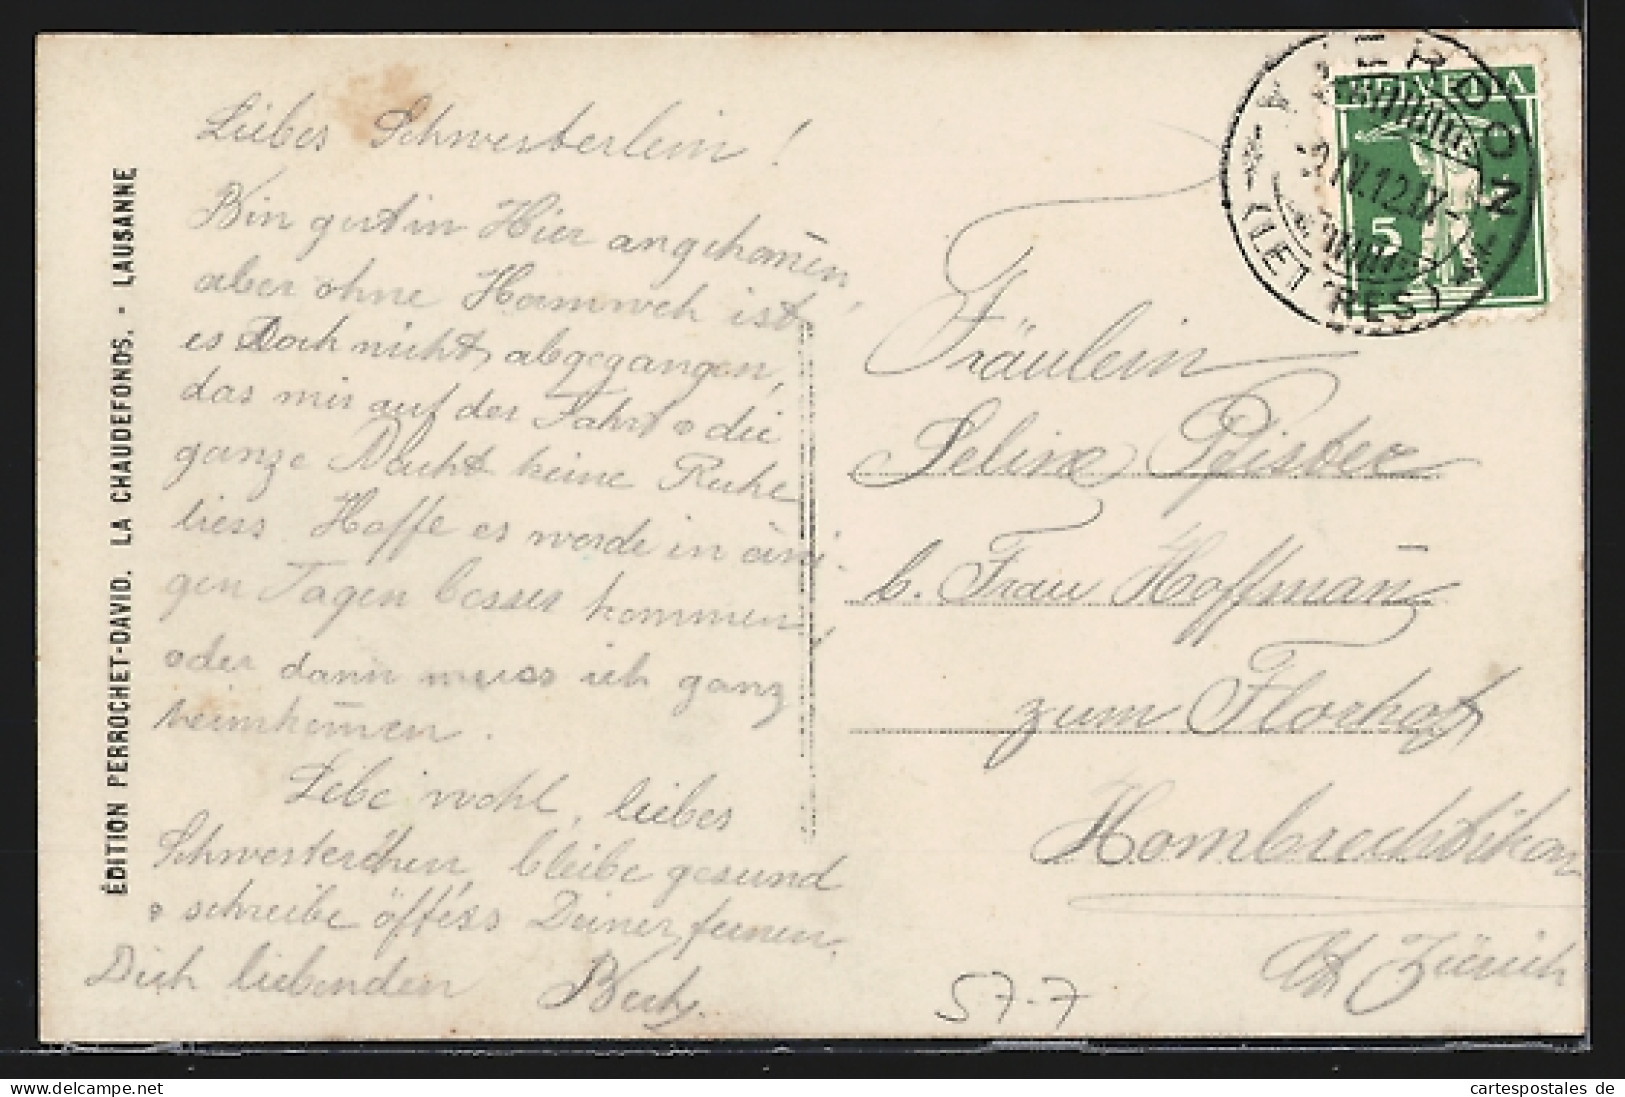 Liebes Schwesterlein!
Bin gut in Hier angekom̄en,
aber ohne Heimweh ist
es Doch nicht abgegangen,
das mir auf der Fahrt & die
ganze Nacht keine Ruhe
liess. Hoffe es werde in eini-
gen Tagen besser kommen,
oder dann muss ich ganz
heimkom̄en.
Lebe wohl, liebes
Schwesterchen, bleibe gesund
& schreibe öfters Deiner fernen,
Dich liebenden
ÉDITION PERROCHET-DAVID. LA CHAUDEFONDS. - LAUSANNE
YVERDON
(LETTRES)
HELVETIA
5
Fräulein
Seline Pfister
b. Frau Hoffman̄
zum Florhof
Hombrechtikon
Kt Zürich
57-7
delcampe.net
cartespostales de